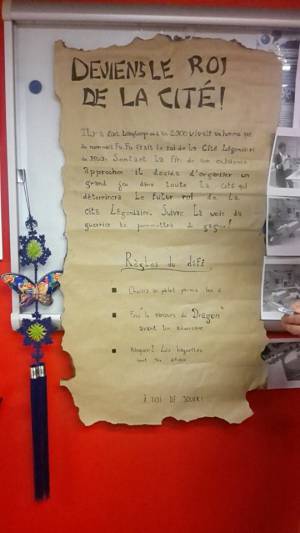 DEVIENS LE ROI
DE LA CITÉ!
Il y a bien longtemps en 2000 vivait un homme qui
se nommait Fu. Fu était le roi de la Cité Légendaire
de Sentant la fin de son existence
approcher il décida d'organiser un
grand jeu dans toute la cité qui
déterminera le futur roi de la
cité Légendaire. Suivre la voie du
guerrier te permettra de gagner!
Règles du défi
Choisis un objet parmi les
le parcours du "Dragon"
avant ton adversaire
Attention! Les baguettes
sont tes
À TOI DE JOUER!